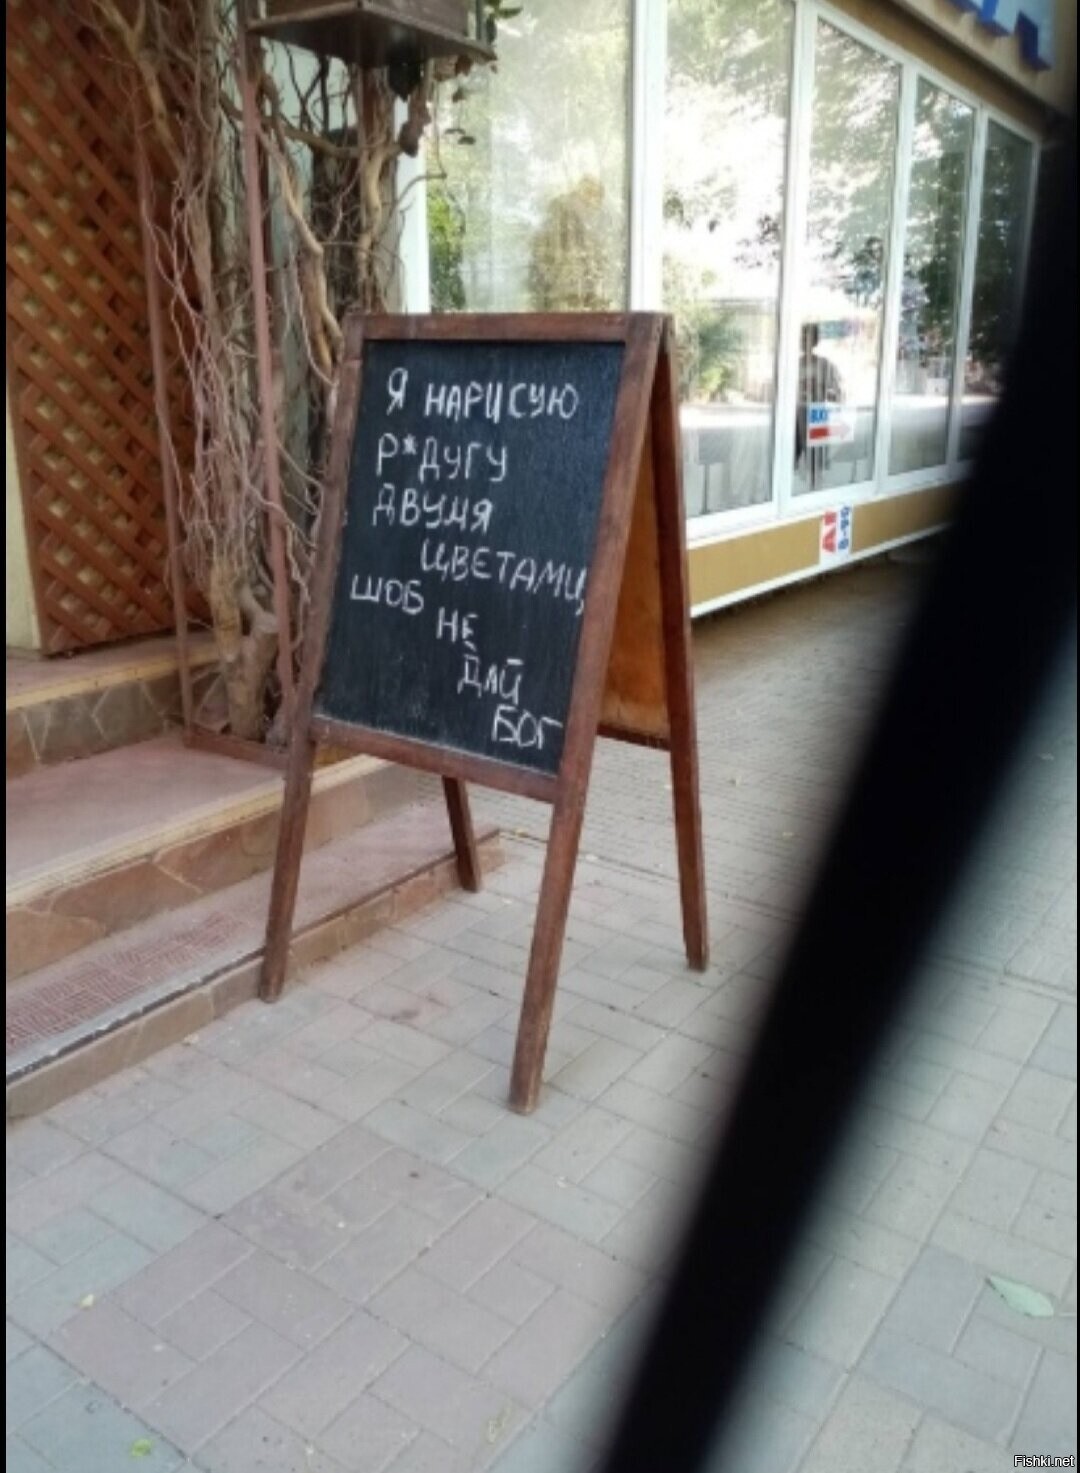 Я НАРИСУЮ
Р*ДУГУ
ДВУМЯ
ЦВЕТАМИ,
ШОБ
НЕ
ДАЙ
БОГ
Fishki.net